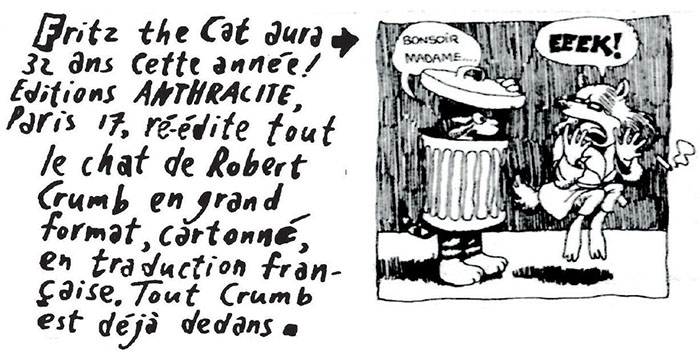 Fritz the Cat aura
32 ans cette année!
Editions ANTHRACITE,
Paris 17, ré-édite tout
le chat de Robert
Crumb en grand
format, cartonné,
en traduction fran-
çaise. Tout Crumb
est déjà dedans.
BONSOIR
MADAME...
EEEK!